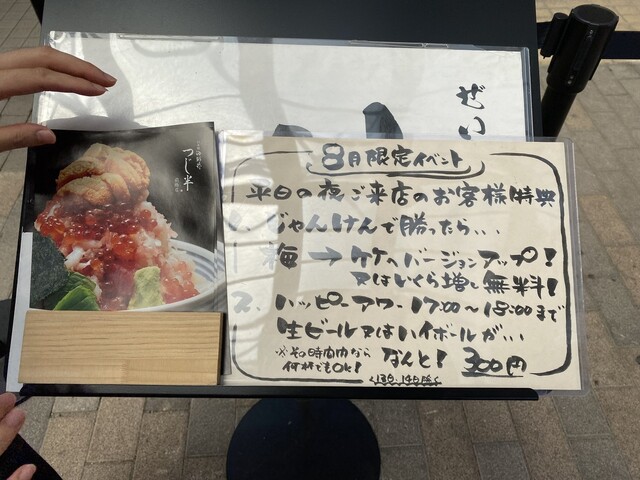 ぜい
つじ半
8月限定イベント
平日の夜ご来店のお客様特典
1、じゃんけんで勝ったら...
梅→竹へバージョンアップ！
又はいくら増し無料！
2、ハッピーアワー17:00～18:00まで
生ビール又はハイボールが...
※その時間内なら
何杯でもOK！
なんと！300円
く13日・14日除く